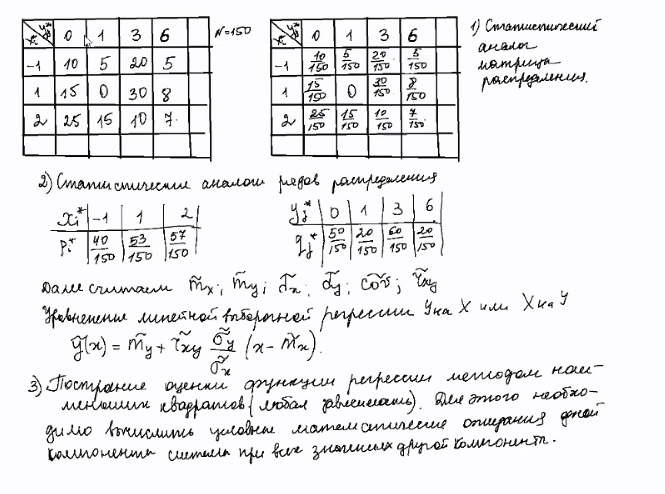 y*j 0 1 3 6 N=150
x*i
-1 10 5 20 5
1 15 0 30 8
2 25 15 10 7
y*j 0 1 3 6
x*i
-1 10/150 5/150 20/150 5/150
1 15/150 0 30/150 8/150
2 25/150 15/150 10/150 7/150
1) Статистический
аналог
матрица
распределения.
2) Статистические аналоги рядов распределения
xi* -1 1 2
pi* 40/150 53/150 57/150
yj* 0 1 3 6
qj* 50/150 20/150 60/150 20/150
Далее считаем m̃x; m̃y; σ̃x; σ̃y; coṽ; r̃xy
Уравнение линейной выборочной регрессии Y на X или X на Y
ỹ(x) = m̃y + r̃xy σ̃y/σ̃x (x - m̃x).
3) Построение оценки функции регрессии методом наи-
меньших квадратов (любая зависимость). Для этого необхо-
димо вычислить условные математические ожидания одной
компоненты системы при всех значениях другой компоненты.